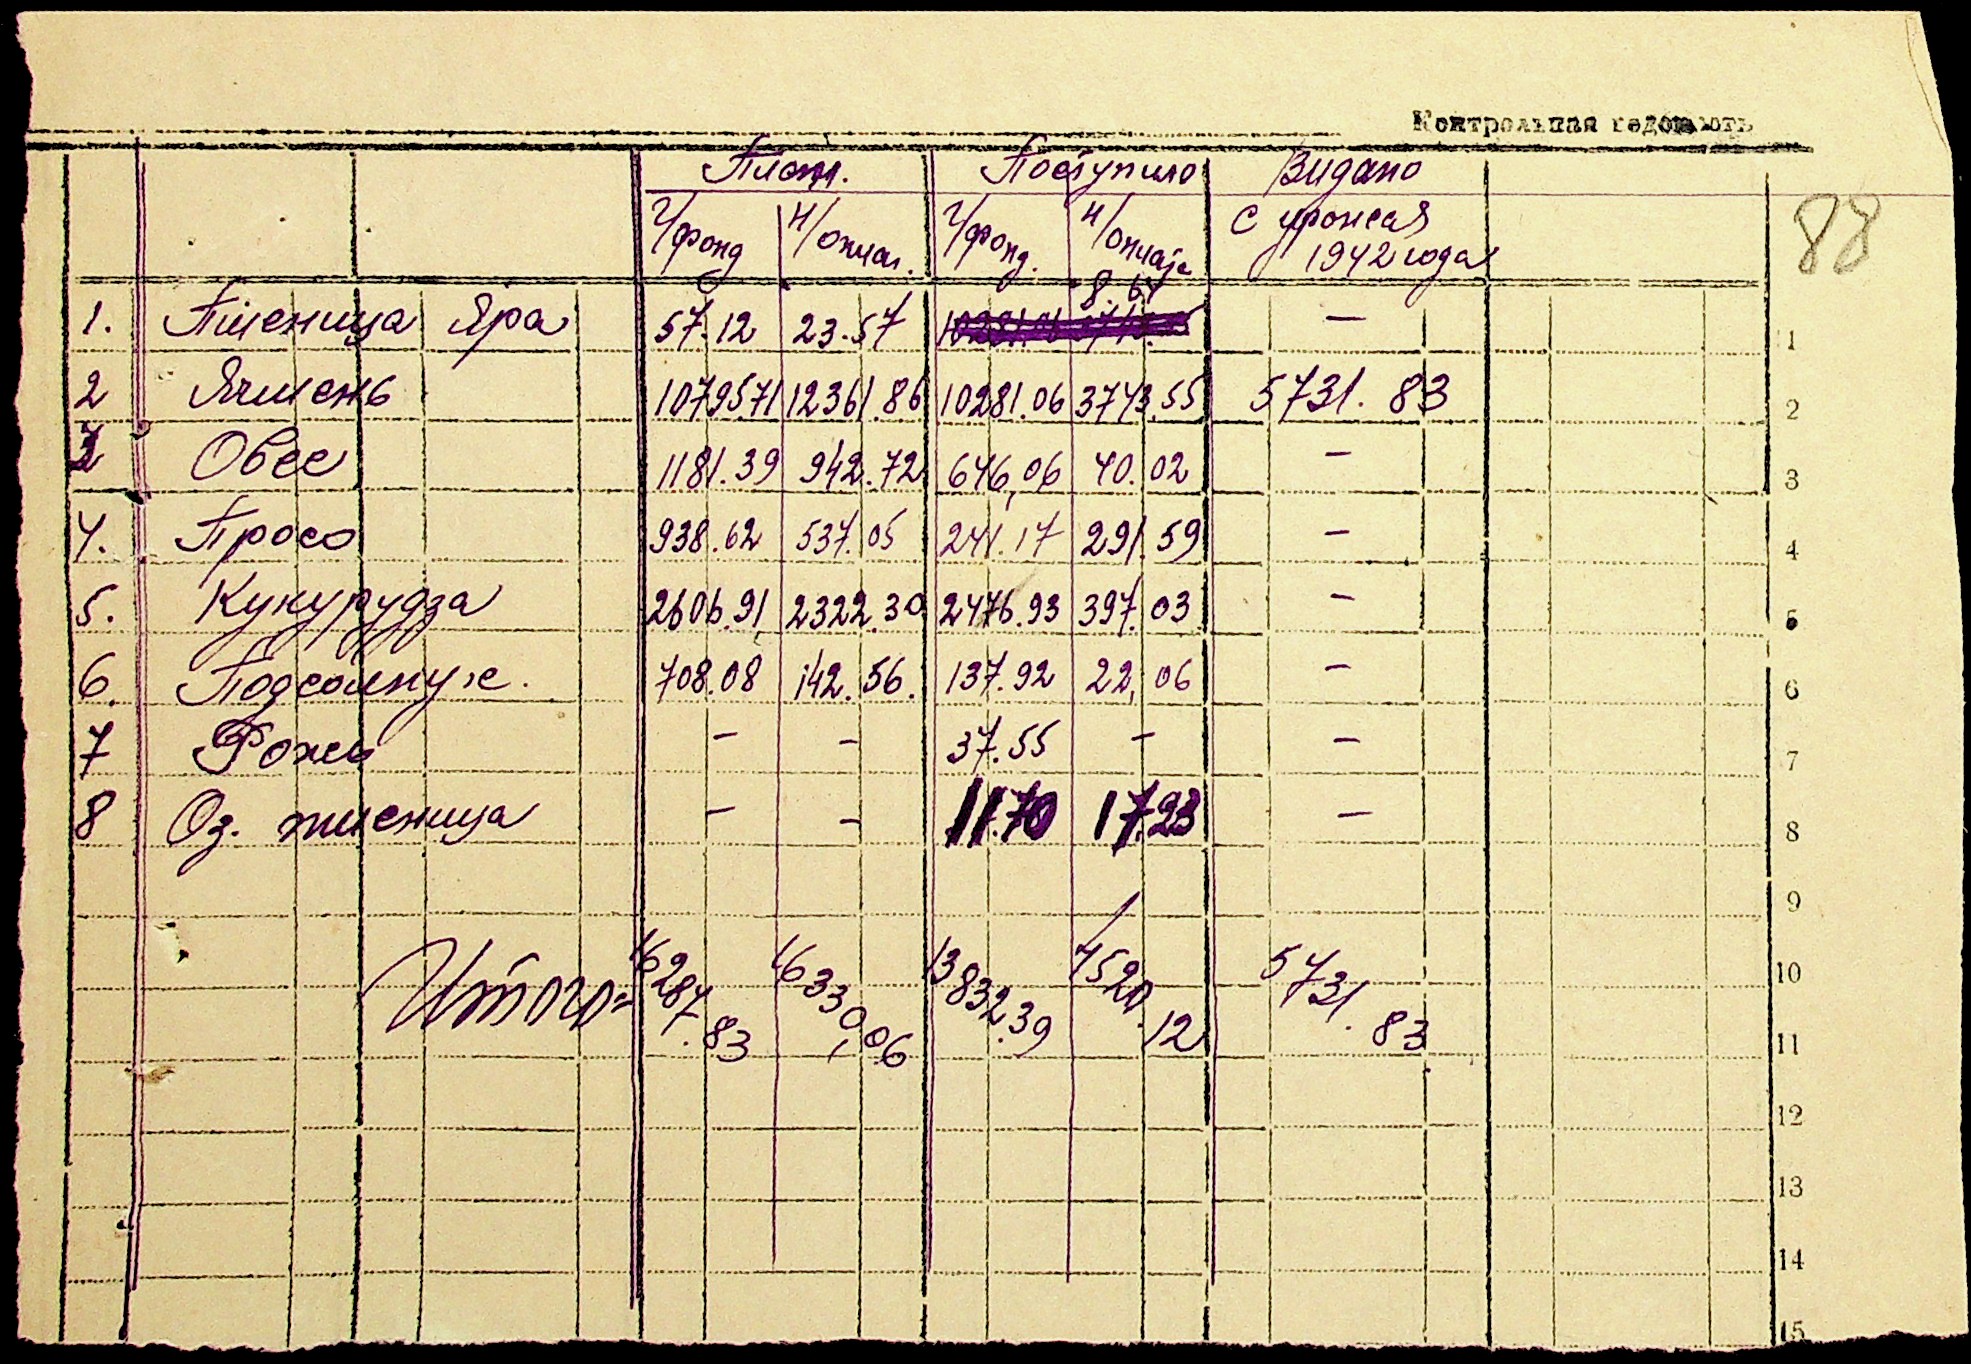 Контрольная ведомость
88
План. Поступило Видано
Г/фонд Н/оплат. Г/фонд. Н/оплаты С урожая
1942 года
8.64
1. Пшеница Яра 57.12 23.57 — 1
2 Ячмень 10795 71 12361.86 10281.06 3743.55 5731.83 2
3 Овес 1181.39 942.72 646,06 40.02 — 3
4. Просо 938.62 537.05 241.17 291.59 — 4
5. Кукурудза 2606.91 2322.30 2476.93 397.03 — 5
6. Подсолнух. 708.08 142.56. 137.92 22,06 — 6
7 Рожь — — 37.55 — — 7
8 Оз. пшеница — — 11.70 17.23 — 8
9
Итого= 16287.83 16330,06 13832.39 4520.12 5731.83 10
11
12
13
14
15